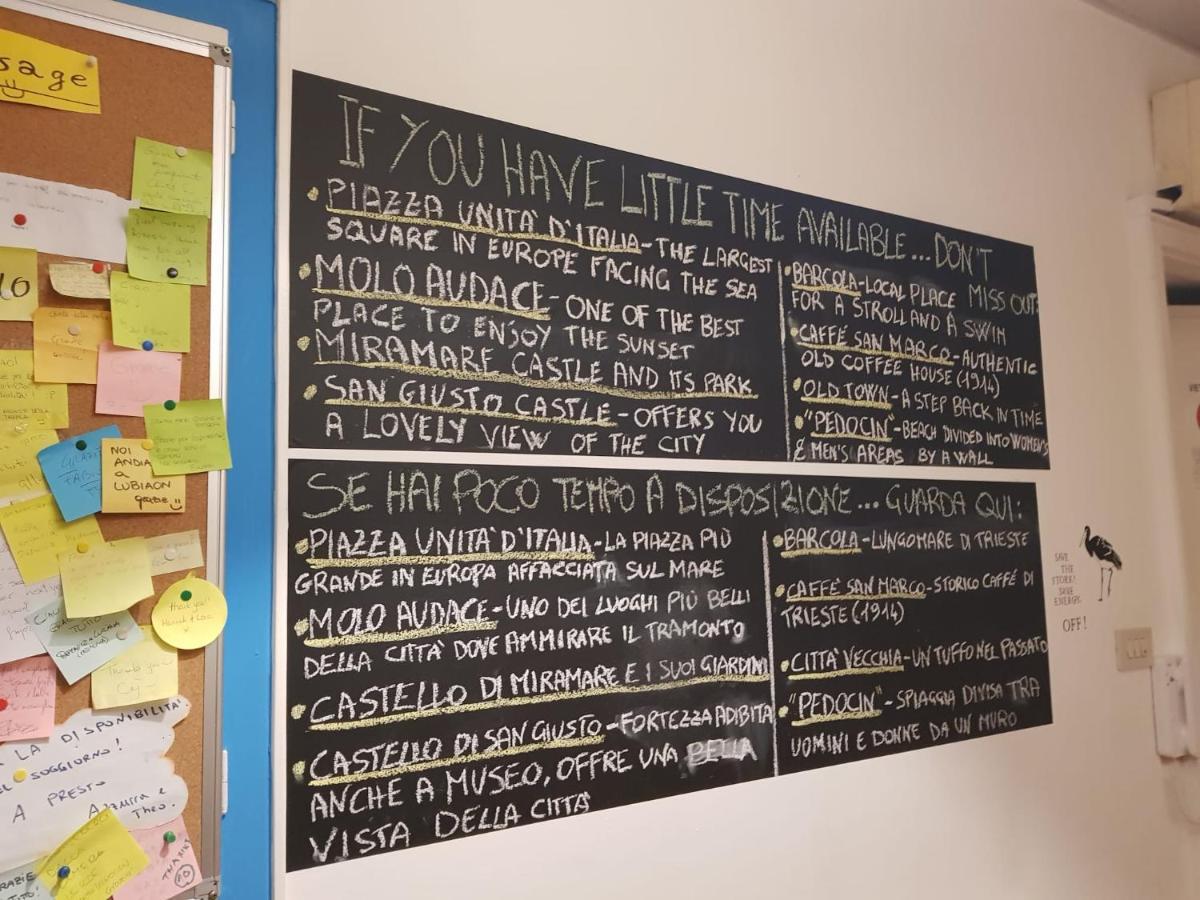 sage
NOI
ANDIAMO
a
LUBIAON
grazie
thank you!
Hannah &
LA DISPONIBILITA'
SOGGIORNO!
A PRESTO
Theo.
IF YOU HAVE LITTLE TIME AVAILABLE... DON'T
MISS OUT:
• PIAZZA UNITA' D'ITALIA - THE LARGEST
SQUARE IN EUROPE FACING THE SEA
• MOLO AUDACE - ONE OF THE BEST
PLACE TO ENJOY THE SUNSET
• MIRAMARE CASTLE AND ITS PARK
• SAN GIUSTO CASTLE - OFFERS YOU
A LOVELY VIEW OF THE CITY
• BARCOLA - LOCAL PLACE
FOR A STROLL AND A SWIM
• CAFFÉ SAN MARCO - AUTHENTIC
OLD COFFEE HOUSE (1914)
• OLD TOWN - A STEP BACK IN TIME
• "PEDOCIN" - BEACH DIVIDED INTO WOMEN'S
& MEN'S AREAS BY A WALL
SE HAI POCO TEMPO A DISPOSIZIONE... GUARDA QUI:
• PIAZZA UNITA' D'ITALIA - LA PIAZZA PIÙ
GRANDE IN EUROPA AFFACCIATA SUL MARE
• MOLO AUDACE - UNO DEI LUOGHI PIÙ BELLI
DELLA CITTÀ DOVE AMMIRARE IL TRAMONTO
• CASTELLO DI MIRAMARE E I SUOI GIARDINI
• CASTELLO DI SAN GIUSTO - FORTEZZA ADIBITA
ANCHE A MUSEO, OFFRE UNA BELLA
VISTA DELLA CITTÀ
• BARCOLA - LUNGOMARE DI TRIESTE
• CAFFÉ SAN MARCO - STORICO CAFFÉ DI
TRIESTE (1914)
• CITTÀ VECCHIA - UN TUFFO NEL PASSATO
• "PEDOCIN" - SPIAGGIA DIVISA TRA
UOMINI E DONNE DA UN MURO
SAVE
THE
STORK!
SAVE
ENERGY.
OFF!